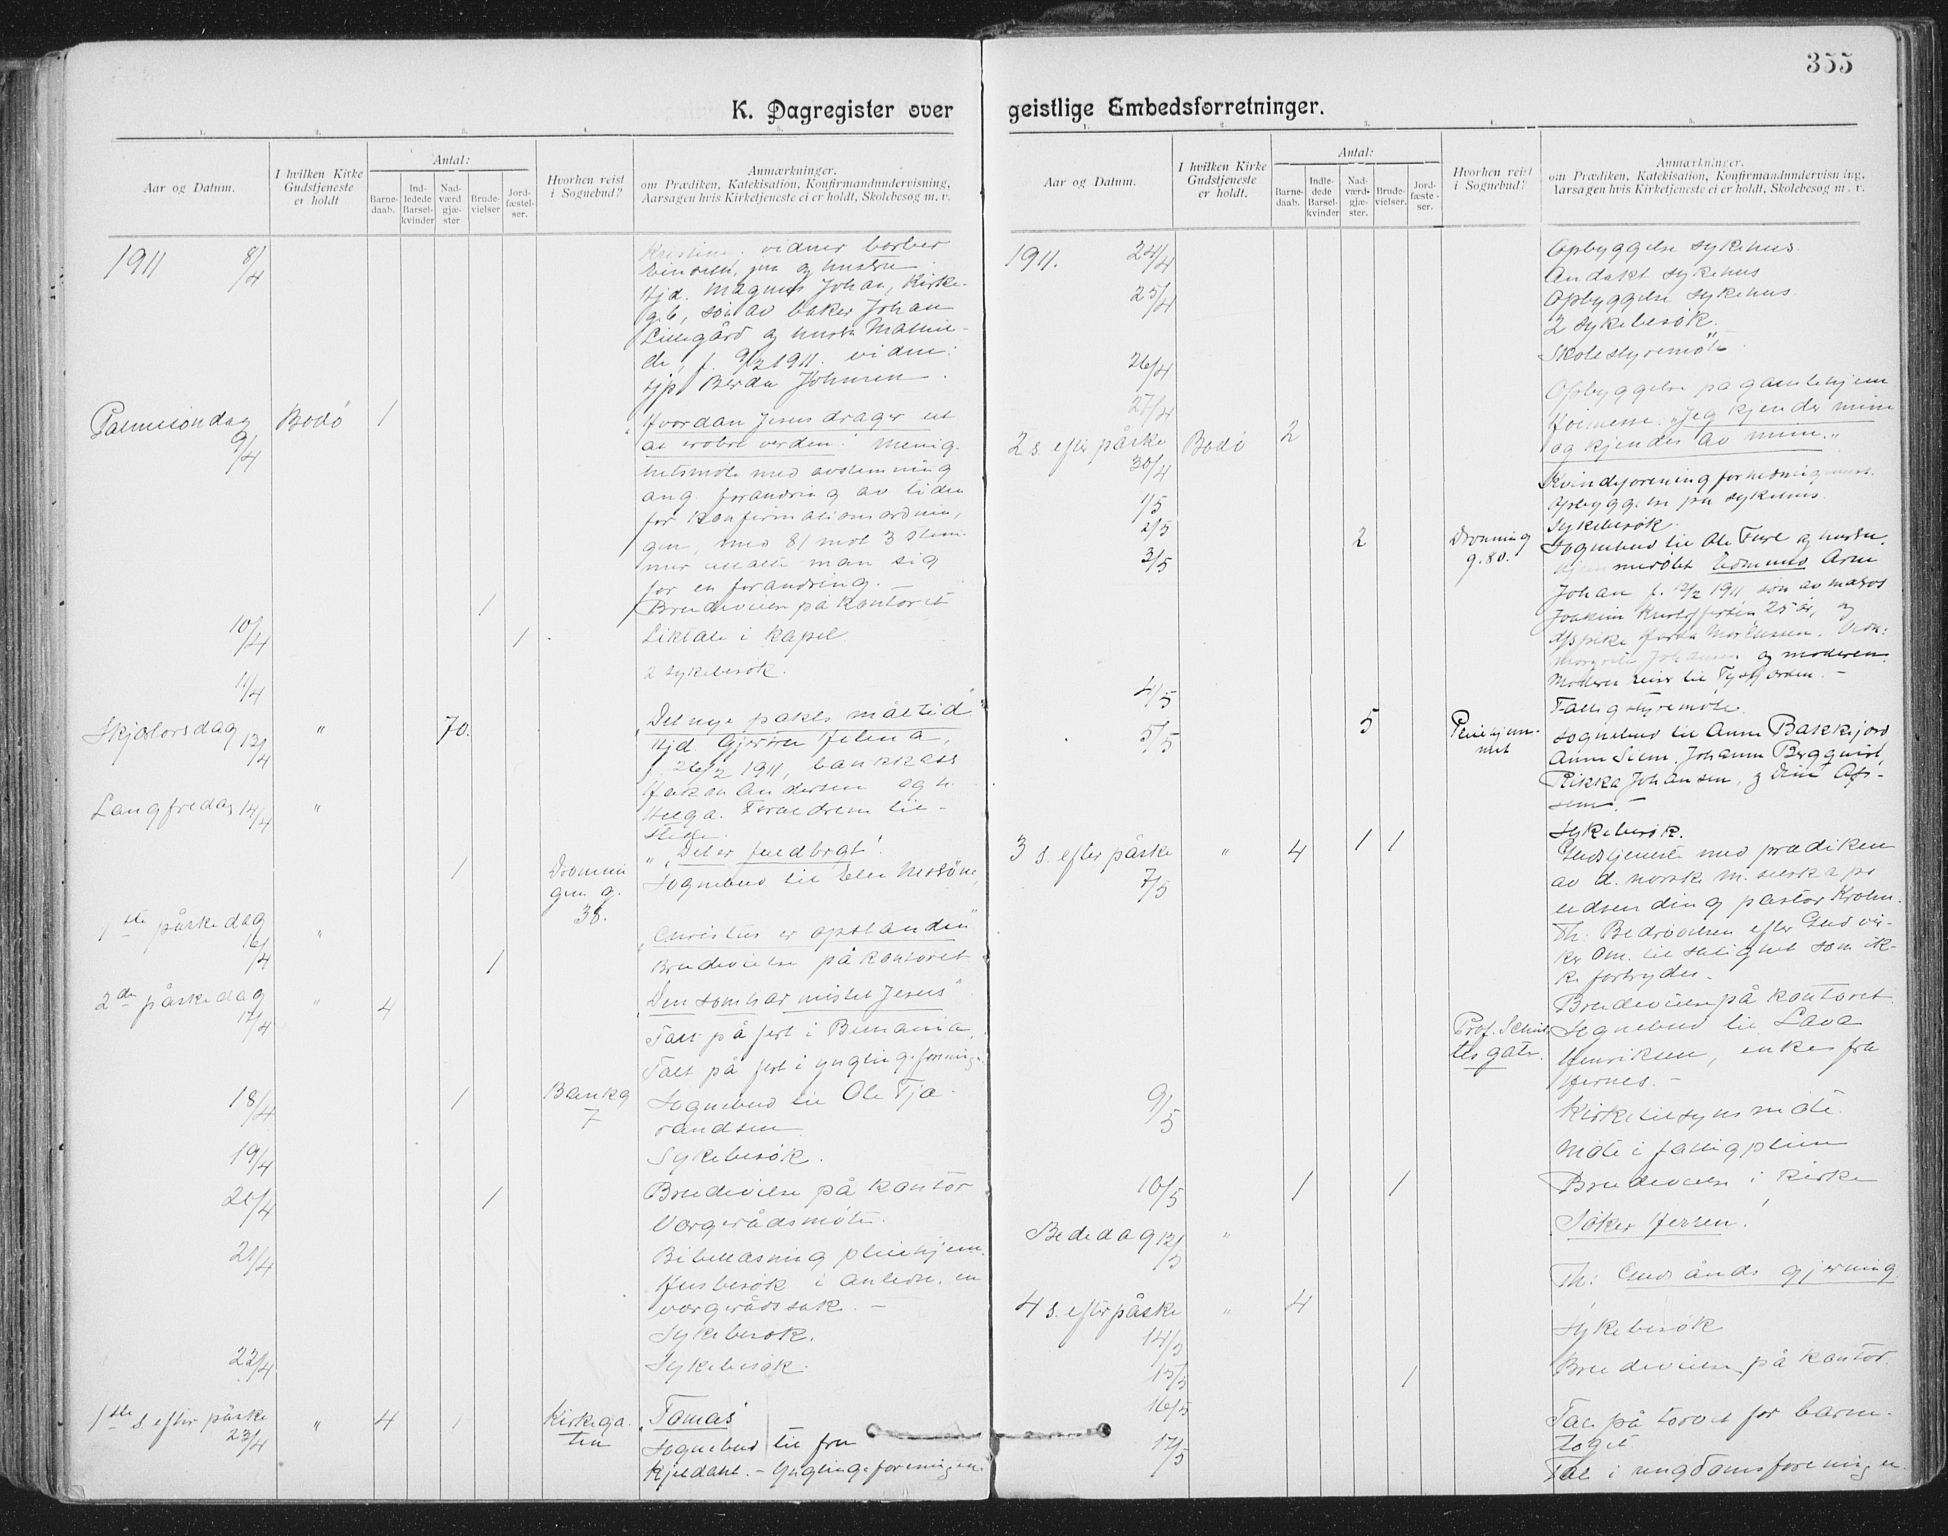 355
K. Dagregister over
geistlige Embedsforretninger.
1.
2.
3.
4.
5.
Aar og Datum.
I hvilken Kirke
Gudstjeneste
er holdt
Antal:
Barne-
daab.
Ind-
ledede
Barsel-
kvinder
Nad-
værd
gjæ-
ster
Brude-
vielser
Jord-
fæstel-
ser.
Hvorhen reist
i Sognebud?
Anmærkninger.
om Prædiken, Katekisation, Konfirmandundervisning,
Aarsagen hvis Kirketjeneste ei er holdt, Skolebesøg m. v.
1911 8/4
vidner barber
og hustru
Hjd. Magnus Johan, Kirke-
g. 6, søn av baker Johan
Lillegård og hustr Mathil-
de, f. 9/2 1911. vidne:
Hjp Berda Johnsen.
Palmesøndag 9/4 Bodø 1
"Hvordan Jesus drager ut
at erobre verden". Menig-
hetsmøte med avstemning
ang. forandring av tiden
for konfirmationsordnin-
gen, med 81 mot 3 stem-
mer uttalte man sig
for en forandring. –
1 Brudevielse på kontoret
10/4 1 Liktale i kapel
2 sykebesøk.
11/4
Skjærtorsdag 13/4 " 70. "Det nye pakts måltid"
Hjd Gjerdrer Helena,
f. 26/2 1911, bankkass
Håkon Andersen og h.
Helga. Foræeldrene til-
stede.
Langfredag 14/4 "
"Det er fuldbragt!"
1 Dronnin
gens g.
38.
Sognebud til
1ste påskedag 16/4 "
"Christus er opstanden"
1 Brudevielse på kontoret
2den påskedag 17/4 " 4 "Den som har mistet Jesus"
Talt på fest i
Talt på fest i ynglingeforening.
18/4 1 Bankg
7
Sognebud til Ole Tja-
randsen
19/4 Sykebesøk.
20/4 1 Brudevielse på kontor
Værgerådsmøte.
21/4 Bibellæsning pleiehjem.
Husbesøk i anledn. en
værgerådssak. –
Sykebesøk.
22/4 Sykebesøk.
1ste s. efter påske 23/4 " 4 1 Kirkega-
ten
"Tomas"
Sognebud til fru
Kjeldahl. – Ynglingeforeningen
1.
2.
3.
4.
5.
Aar og Datum.
I hvilken Kirke
Gudstjeneste
er holdt.
Antal:
Barne-
daab.
Indle-
dede
Barsel-
kvinder
Nad-
værd
gjæ-
ster.
Brude-
vielser.
Jord-
fæstel-
ser.
Hvorhen reist
i Sognebud?
Anmærkninger.
om Prædiken, Katekisation, Konfirmandundervisning,
Aarsagen hvis Kirketjeneste ei er holdt, Skolebesøg m. v.
1911. 24/4 Opbyggelse sykehus.
Andakt sykehus
25/4 Opbyggelse sykehus
2 sykebesøk.
Skolestyremøte
26/4
Opbyggelse på gamlehjem
27/4
2 s. efter påske 30/4 Bodø 2
Høimesse: "Jeg kjender mine
og kjendes av mine."
Kvindeforening for
1/5 Opbyggelse på sykehus.
2/5 Sykebesøk.
3/5 2 Dronning
g. 80.
Sognebud til Ole Fure og hustru.
Hjemmedøbt Edmund Arne
Johan f. 12/2 1911 søn av matros
Joakim Kristoffersen 25 år, og
Vidn:
Johansen og moderen.
Moderen reiser til Tysfjorden. –
4/5 Fattigstyremøte.
5/5 5 Pleiehjem-
met
Sognebud til Anne Bakkejord
Anne Siem. Johanne Bergquist,
Rikka Johansen, og Dine
Sykebesøk.
3 s. efter påske 7/5 " 4 1 1
Gudstjeneste med prædiken
av d. norske m. selskaps
udsending pastor Krohn.
Th: Bedrøvelsen efter Gud vir-
ker Om. til salighet som ik-
ke fortrydes.
Brudevielse på kontoret
Prof. Schul-
tes gate.
Sognebud til Lava
Henriksen, enke fra
Hernes. –
9/5 Kirketilsynsmøte
Møte i fattigpleien
10/5 1 1 Brudevielse i kirke
Bededag 12/5 " "Søker Herren!"
4 s. efter påske 14/5 " 4
Th: Guds ånds gjerning
Sykebesøk
15/5 1 Brudevielse på kontor.
16/5
17/5
Tale på torvet for barne-
toget
Tale i ungdomsforeningen